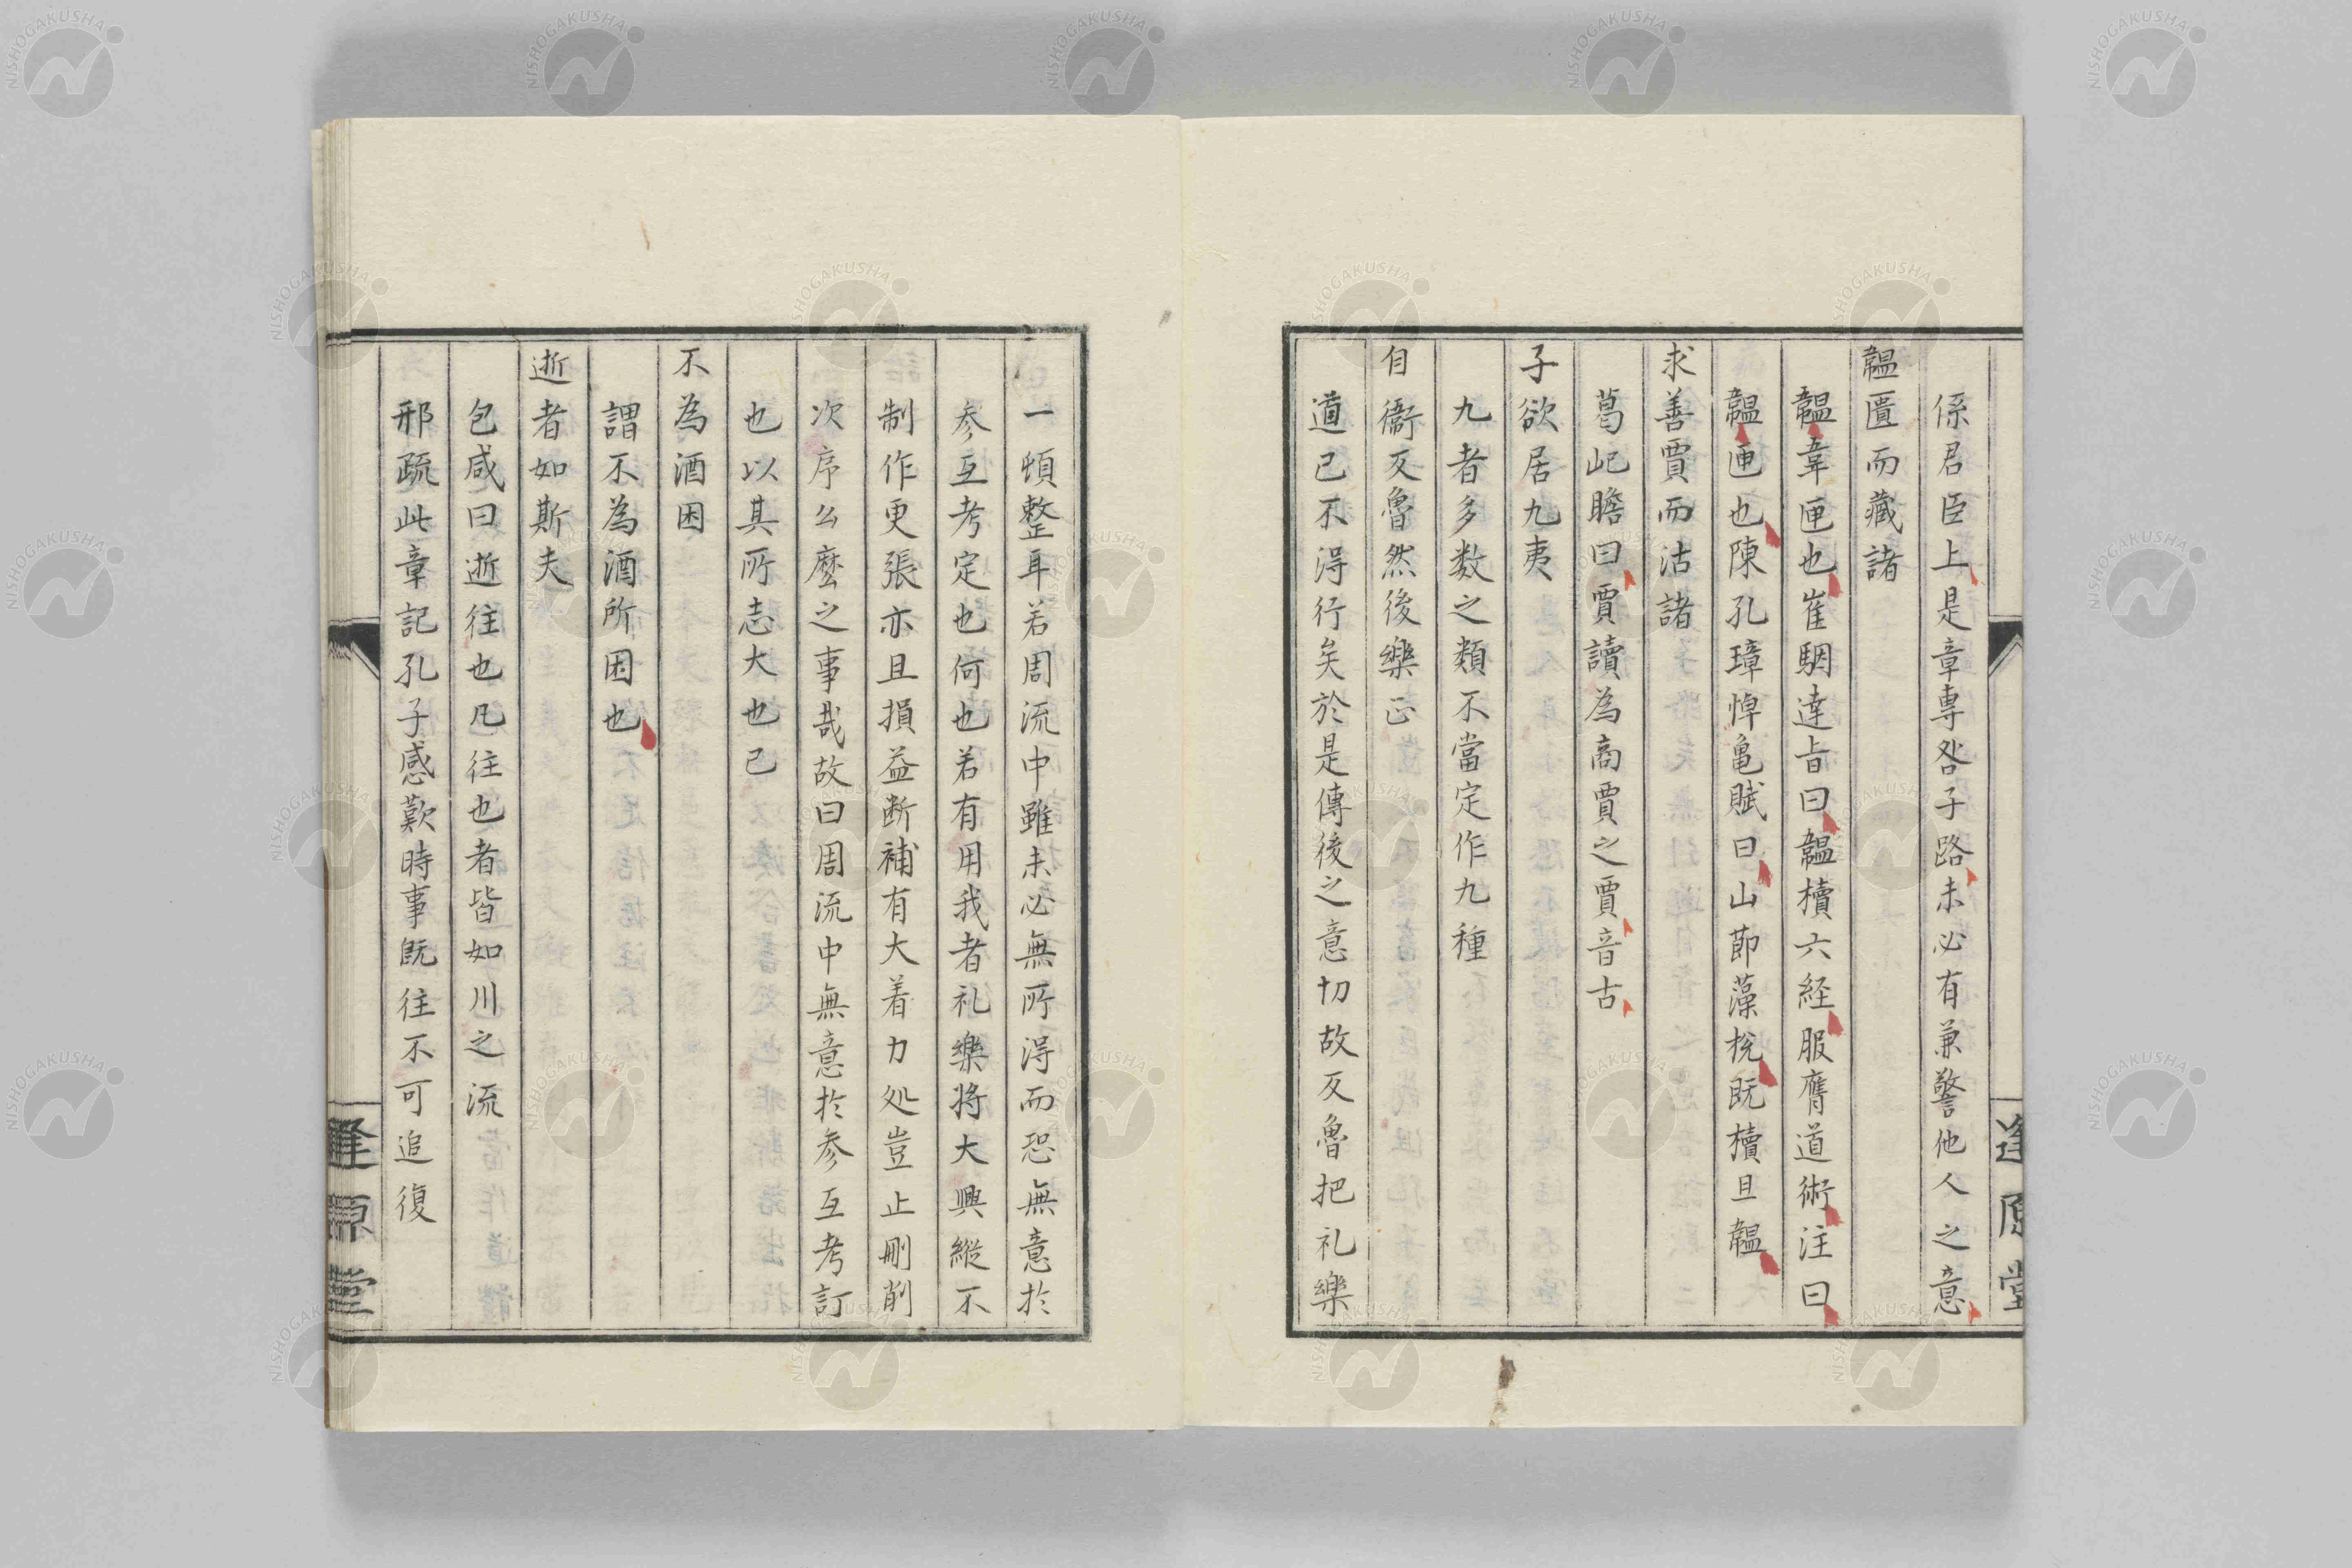 係君臣上是章專咎子路未必有兼警他人之意
韞匵而藏諸
韞韋匣也崔駰達旨曰韞櫝六経服膺道術注曰
韞匣也陳孔璋悼亀賦曰山節藻梲既櫝且韞
求善賈而沽諸
葛屺瞻曰賈讀為商賈之賈音古
子欲居九夷
九者多数之類不當定作九種
自衞反魯然後樂正
道已不淂行矣於是傳後之意切故反魯把礼樂
逢原堂
一頓整耳若周流中雖未必無所淂而恐無意扵
参互考定也何也若有用我者礼樂将大興縱不
制作更張亦且損益断補有大着力処豈止刪削
次序么麼之事哉故曰周流中無意扵参互考訂
也以其所志大也已
不為酒困
謂不為酒所困也
逝者如斯夫
包咸曰逝往也凡往也者皆如川之流
邢疏此章記孔子感歎時事既往不可追復
逢原堂
NISHOGAKUSHA